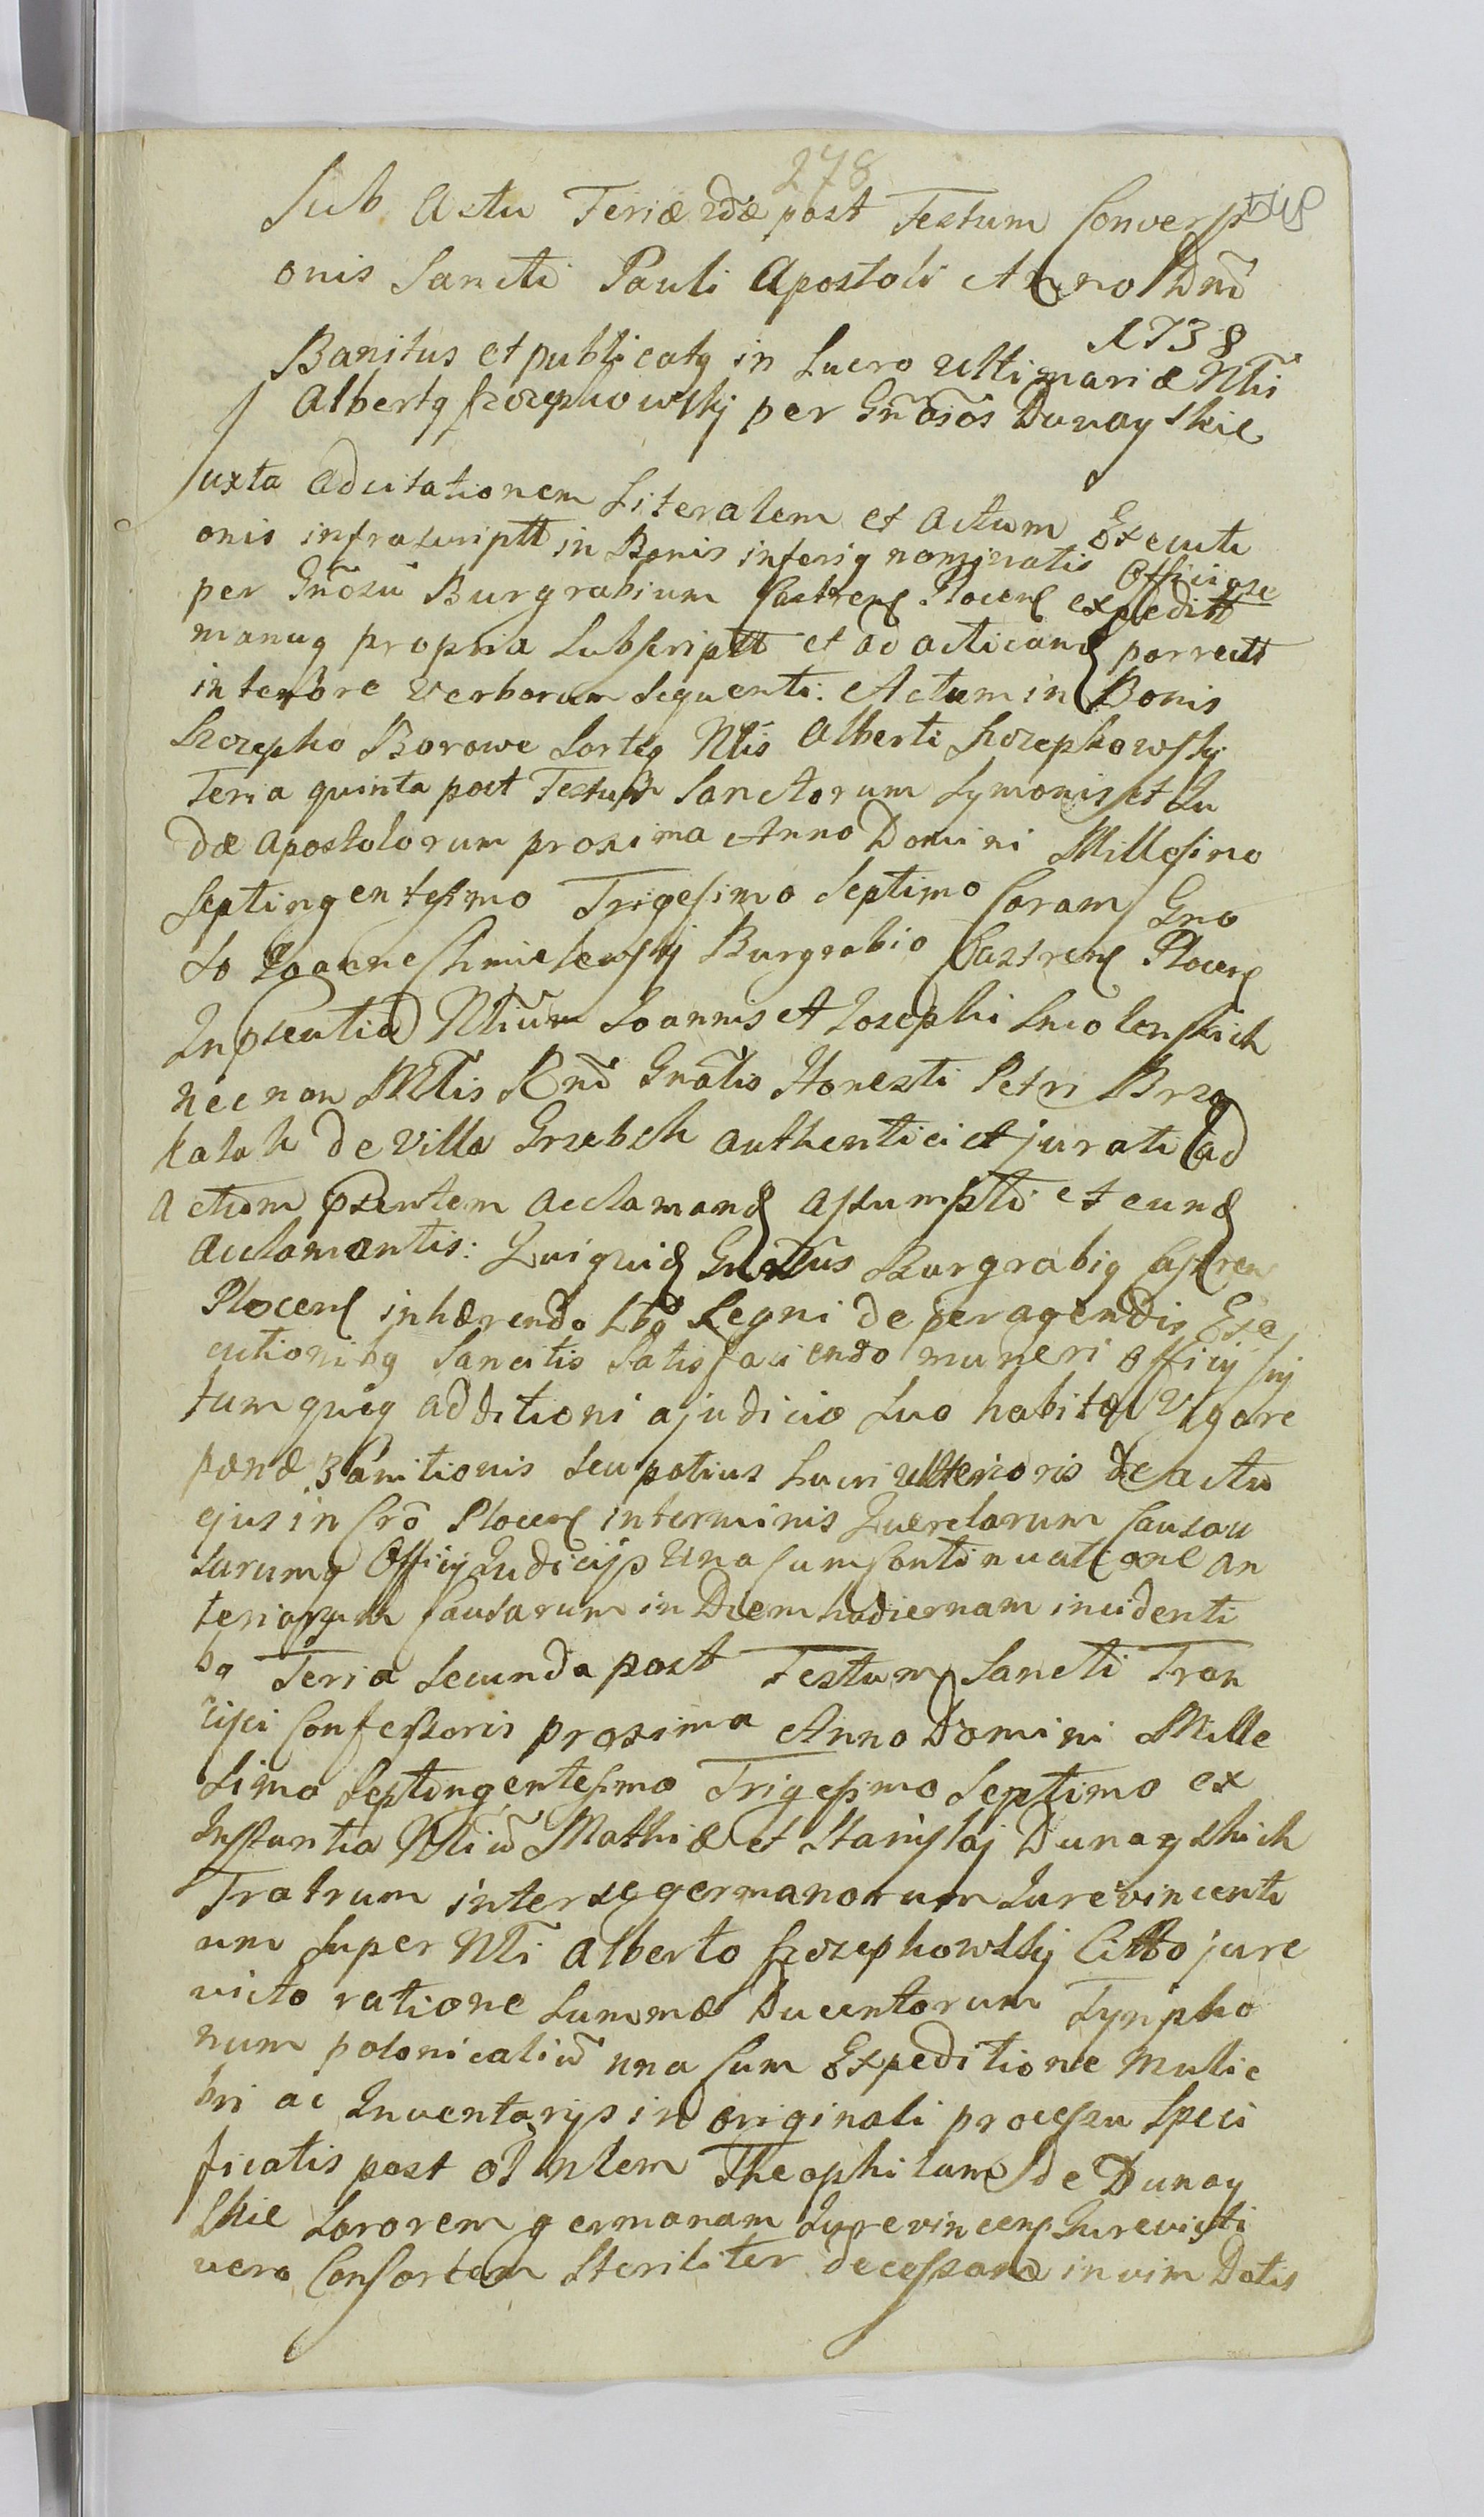 278
Sub Actu Feriæ 2dæ post Festum Conversi
onis Sancti Pauli Apostoli Anno Dni
1738
Banitus et publicatq in Lucro Ulti mariæ Nlis
Albertq Szczepkowskj per Gnosos Dunayskie
Juxta Adcitationem Literalem et Actum Executi
onis infrascriptt in Bonis inferiq nominatis Officiose
per Gnosu Burgrabium Castren Plocen expeditt
manuq propria Subscriptt et ad acticand porrectt
in tenore verborum sequenti: Actum in Bonis
Szczepko Borowe Sorteq Nlis Alberti Szczepkowskj
Feria quinta post Festum Sanctorum Symonis et Ju
dæ Apostolorum proxima Anno Domini Millesimo
Septingentesimo Trigesimo Septimo Coram Gno
so Joanne Chmielewskj Burgrabio Castren Plocen
In psentia Nliũm Joannis et Josephi Smolenskich
nec non Mtlis Rni Gnalis Honesti Petri Brzą
kalak de Villa Grzebsk authentici et jurati ad
actum psentem acclamand assumpti et eund
acclamantis: Quiquid Gnosus Burgrabiq Castren
Plocen inhærendo Lbq Regni de peragendis Exe
cutionibq Sancitis Satisfaciendo muneri officij sui
tum quiq additioni a judicio Suo habitæ Vigore
pænæ 3 Banitionis seu potius Lucri Ulterioris de actu
ejus in Cro Plocen in terminis Querelarum Causau
surumq Officij Judicijs Una Cum Continuatione an
teriorum Causarum in Diem hodiernam incidenti
bq Feria Secunda post Festum Sancti Fran
cisci Confessoris proxima Anno Domini Mille
simo Septingentesimo Trigesimo Septimo ex
Instantia Nliũ Mathiæ et Stanislaj Dunayskich
Fratrum inter se germanorum Jurevincenti
um super Nli Alberto Szczepkowskj Citto jure
victo ratione Summæ Ducentorum Tynpho
num polonicaliũ una Cum Expeditione mulie
bri ac Inventarijs in originali processu Speci
ficatis post olim Theophilam de Dunay
skie Sororem germanam Jurevincen Jurevicti
vero Consortem Steriliter decessam in vim Dotis